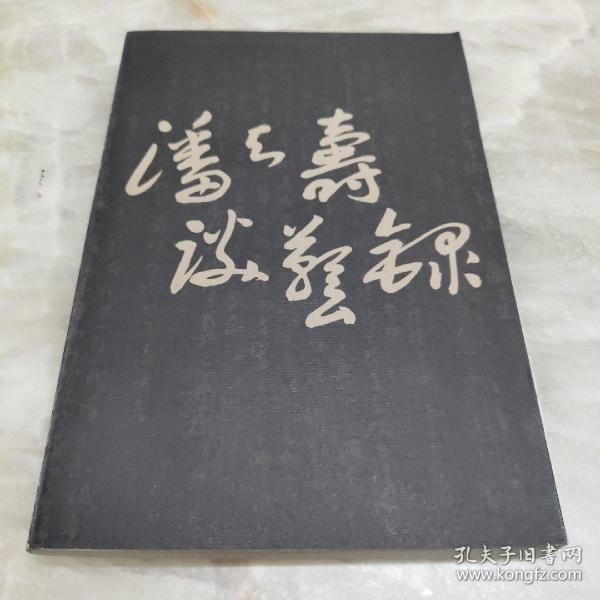 潘天壽
談藝録
孔夫子旧书网
www.kongfz.com